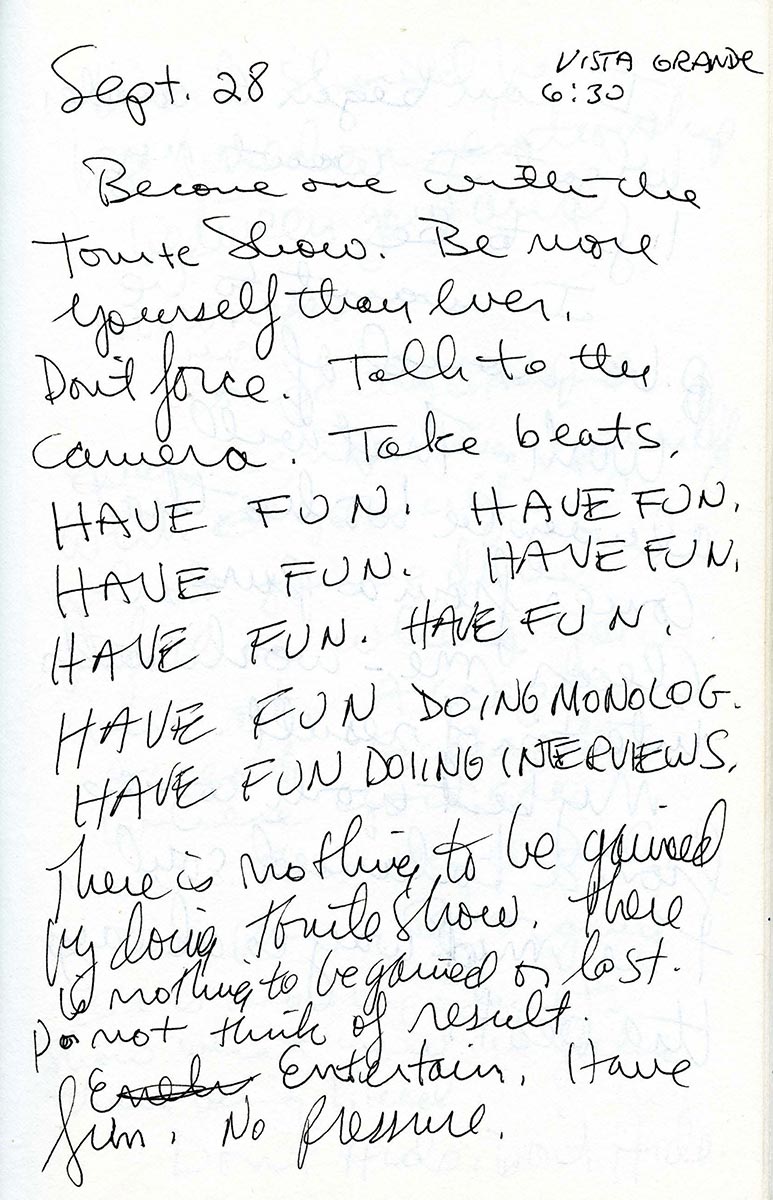 Sept. 28
VISTA GRANDE
6:30
Become one with the
Tonite Show. Be more
yourself than ever.
Don't force. Talk to the
camera. Take beats.
HAVE FUN. HAVE FUN.
HAVE FUN. HAVE FUN.
HAVE FUN. HAVE FUN.
HAVE FUN DOING MONOLOG.
HAVE FUN DOIING INTERVIEWS.
There is nothing to be gained
by doing Tonite Show. There
is nothing to be gained or lost.
Do not think of result.
Entertain. Have
fun. No pressure.